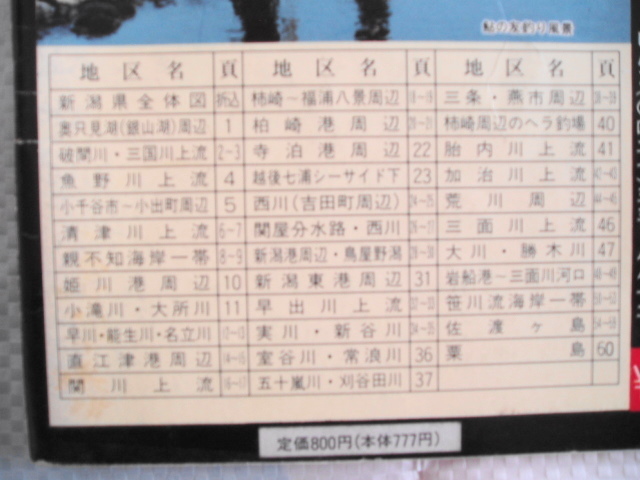 鮎の友釣り風景
地区名 頁 地区名 頁 地区名 頁
新潟県全体図 折込 柿崎～福浦八景周辺 18～19 三条・燕市周辺 38～39
奥只見湖(銀山湖)周辺 1 柏崎港周辺 20～21 柿崎周辺のヘラ釣場 40
破間川・三国川上流 2～3 寺泊港周辺 22 胎内川上流 41
魚野川上流 4 越後七浦シーサイド下 23 加治川上流 42～43
小千谷市～小出町周辺 5 西川(吉田町周辺) 24～25 荒川周辺 44～45
清津川上流 6～7 関屋分水路・西川 三面川上流 46
親不知海岸一帯 8～9 新潟港周辺・鳥屋野潟 大川・勝木川 47
姫川港周辺 10 新潟東港周辺 31 岩船港～三面川河口 48～49
小滝川・大所川 11 早出川上流 32～33 笹川流海岸一帯
早川・能生川・名立川 12～13 実川・新谷川 34～35 佐渡ヶ島
直江津港周辺 14～15 室谷川・常浪川 36 粟島 60
関川上流 16～17 五十嵐川・刈谷田川 37
定価800円(本体777円)